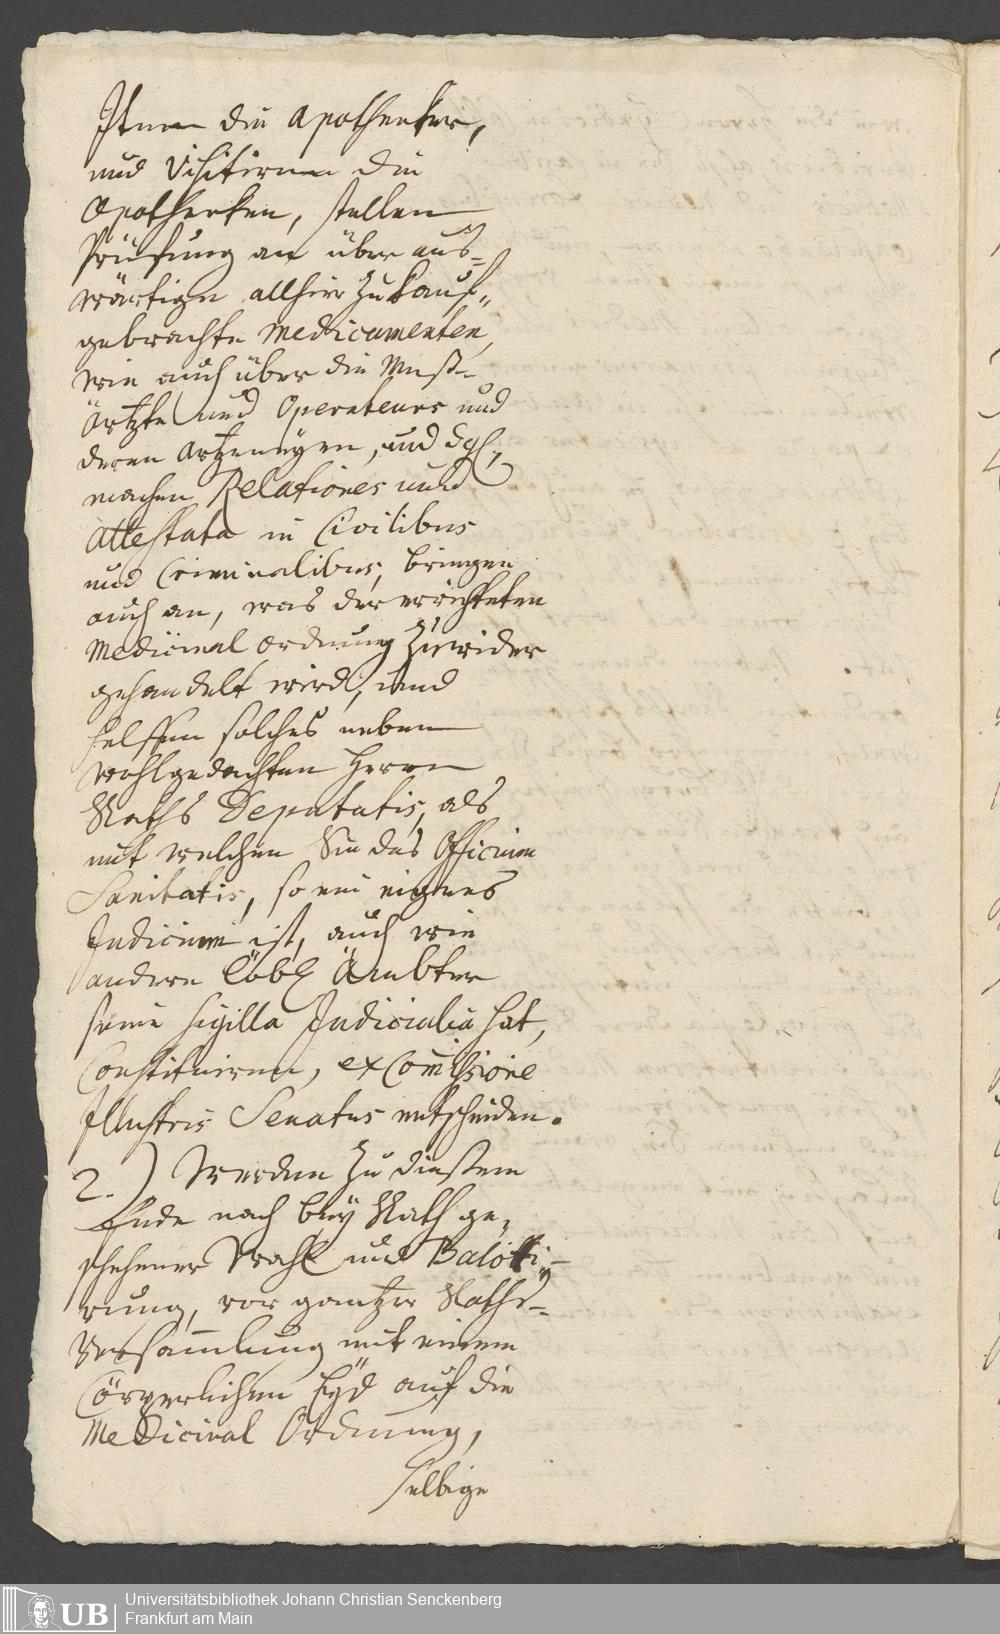 Item die Apothecker,
und Visitiren die
Apothecken, stellen
Prüfung an über aus-
wärtige allhier zukauf-
gebrachte Medicamenten,
wie auch über die
Ärtzte und Operateurs und
deren Artzeneyen, und dgl.,
machen Relationes und
Attestata in Civilibus
und Criminalibus, bringen
auch an, was der errichteten
Medicinal Ordnung zuwider
gehandelt wird, und
helffen solches neben
Wohlgedachten Herren
Raths Deputatis, als
mit welchen Sie das Officium
Sanitatis, so ein eigenes
Judicium ist, auch wie
andere Löbl Ämbter
seine Sigilla Judicialia hat,
Constituiren, ex Comissione
Illustris Senatus entscheiden.
2.) Werden zu dießem
Ende nach bey Rath ge-
schehener Wahl und Balotti-
rung, vor gantzer Raths-
Versamlung mit einem
Cörperlichen Eyd auf die
Medicinal Ordnung,
selbige
Universitätsbibliothek Johann Christian Senckenberg
Frankfurt am Main
UB